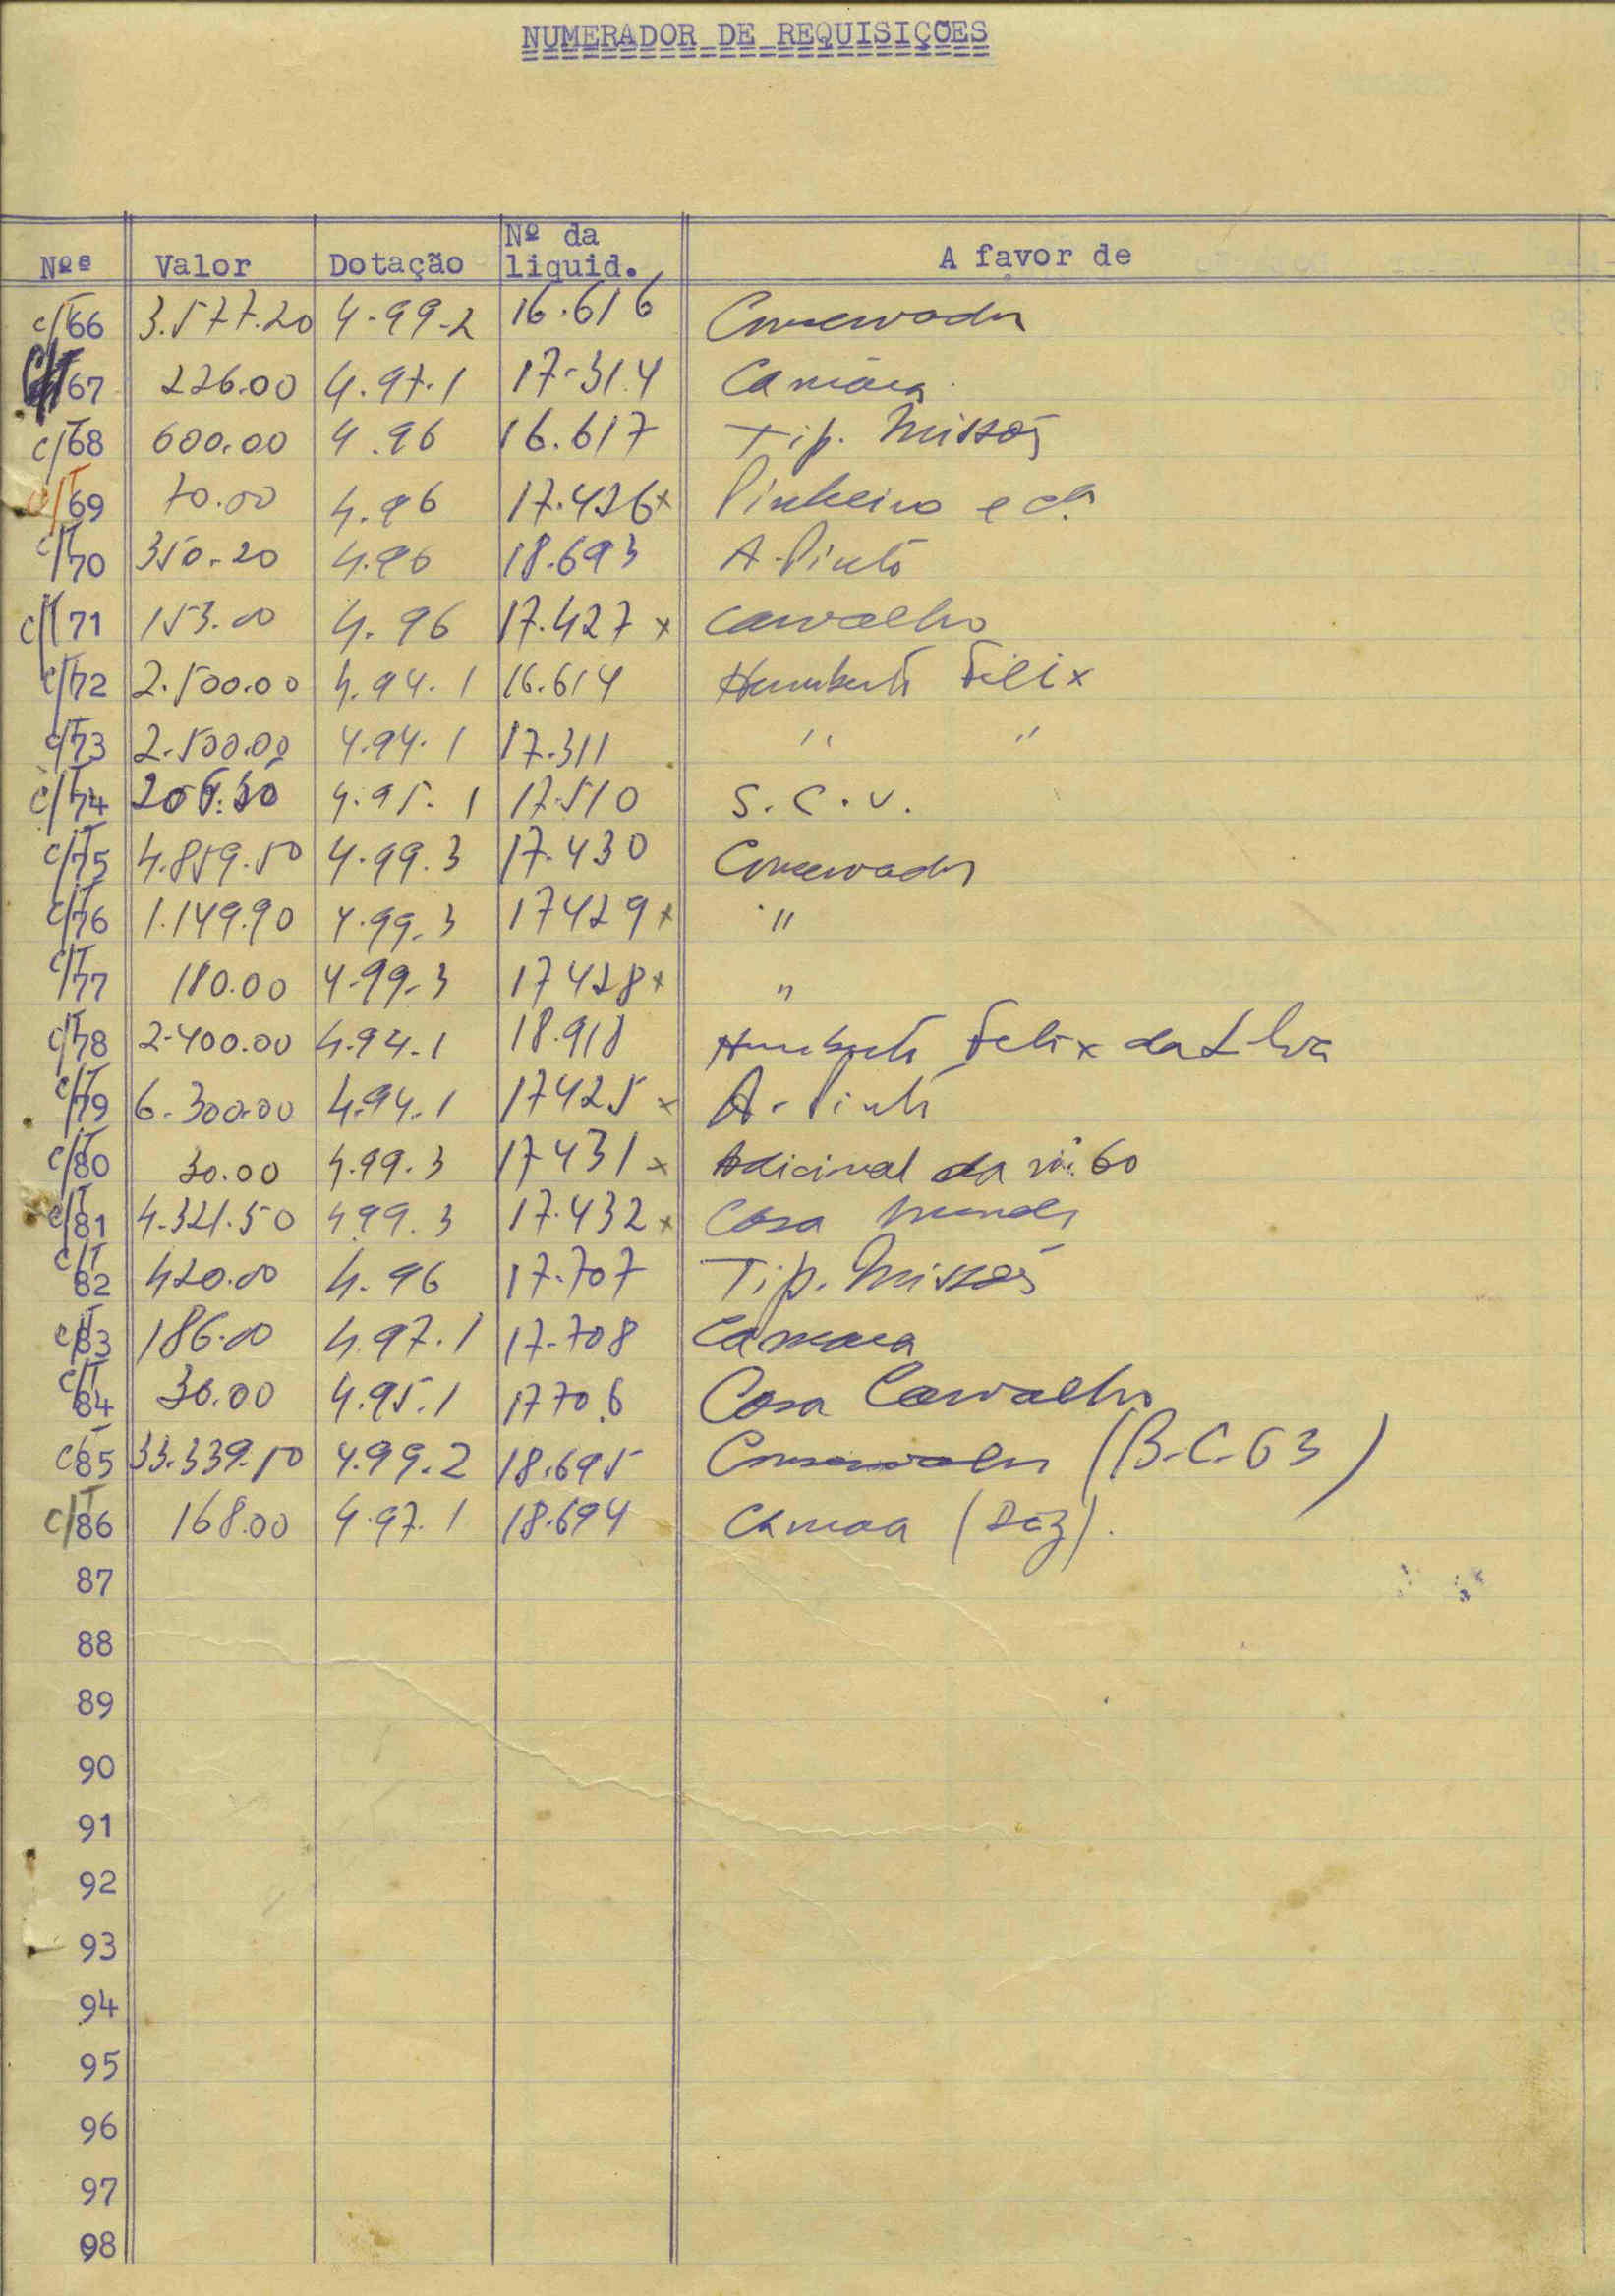 NUMERADOR DE REQUISIÇÕES
Nºs Valor Dotação Nº da liquid. A favor de
c/T 66 3.577.20 4.99.2 16.616 Conservador
c/T 67 226.00 4.97.1 17.314 Camara
c/T 68 600.00 4.96 16.617 Tip. Missões
c/T 69 70.00 4.96 17.426 x Pinheiro e Cª
c/T 70 350.20 4.96 18.693 A. Pinto
c/T 71 153.00 4.96 17.427 x Carvalho
c/T 72 2.500.00 4.94.1 16.614 Humberto Felix
c/T 73 2.500.00 4.94.1 17.311 " "
c/T 74 4.95.1 17.510 S.C.V.
c/T 75 4.859.50 4.99.3 17.430 Conservador
c/T 76 1.149.90 4.99.3 17429 x "
c/T 77 180.00 4.99.3 17428 x "
c/T 78 2.400.00 4.94.1 18.918 Humberto Felix da Silva
c/T 79 6.300.00 4.94.1 17425 x A. Pinto
c/T 80 30.00 4.99.3 17431 x Adicional da nº 60
c/T 81 4.321.50 4.99.3 17.432 x Casa
c/T 82 420.00 4.96 17.707 Tip. Missões
c/T 83 186.00 4.97.1 17.708 Camara
c/T 84 30.00 4.95.1 17706 Casa Carvalho
c/T 85 33.339.50 4.99.2 18.695 Conservador (B.C.63)
c/T 86 168.00 4.97.1 18.694 Camara (Dez).
87
88
89
90
91
92
93
94
95
96
97
98